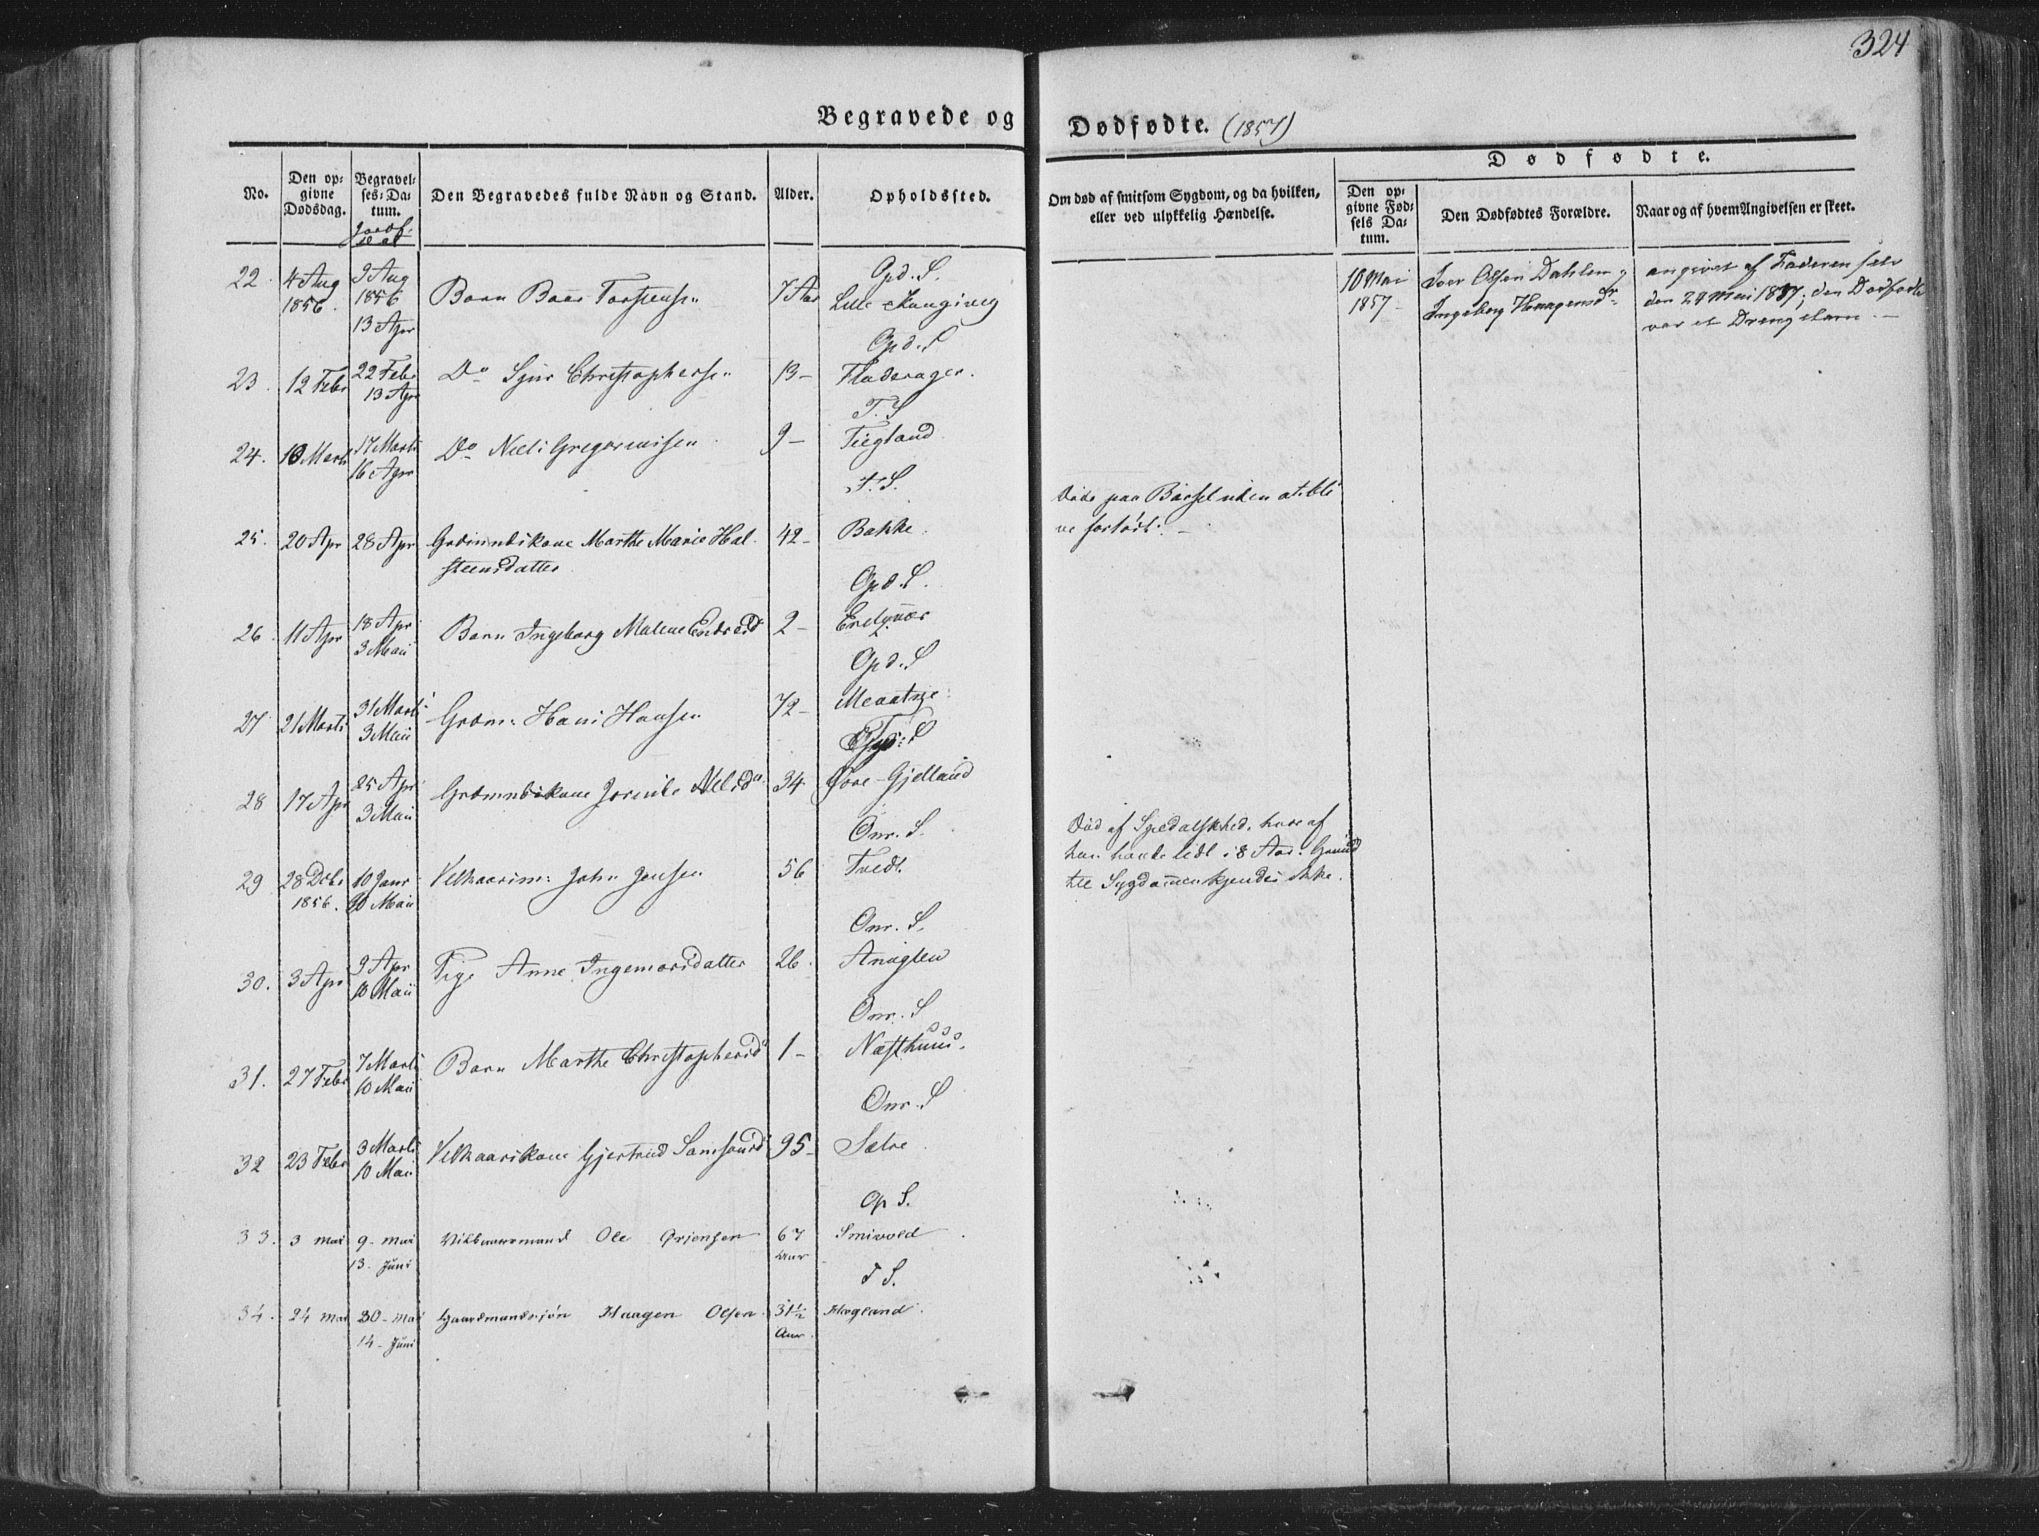 324
Begravede og Dødfødte. (1857)
No.
Den op-
givne
Dødsdag.
Begravel-
ses-Da-
tum.
Jordf.
Den Begravedes fulde Navn og Stand.
Alder.
Opholdssted.
Om død af smitsom Sygdom, og da hvilken,
eller ved ulykkelig Hændelse.
Dødfødte.
Den op-
givne Fød-
sels Da-
tum.
Den Dødfødtes Forældre.
Naar og af hvem Angivelsen er skeet.
22. 4 Aug 1856. 9 Aug 1856 13 Apr Barn Baar Torstensen 7 Aar Opd. S. Lille
10 Mai 1857 Iver Olsen Dahlen og Ingeborg Haagensdr
angivet af Faderen selv
den 29 Mai 1857; den Dødfødte
var et Drengebarn. –
23. 12 Febr 22 Febr 13 Apr Do Sjur Christophersen 13 – Opd. S Fladerager.
24. 10 Marti 17 Marti 16 Apr Do Niels Gregoriusen 9 – F. S Teigland
25. 20 Apr 28 Apr Gaardmandskone Marthe Marie Hal-
steensdatter 42 – F. S. Bakke.
Døde paa Barsel uden at bli-
ve forløst. –
26. 11 Apr 18 Apr 3 Maii Barn Ingeborg Malene Endresd 2 – Opd. S. Erelzvær
27 21 Marti 31 Marti 3 Maii Grdm: Hans Hansen 72 – Opd. S Meaatne
28 17 Apr 25 Apr 3 Maii Nelsdr 34 S Øvre-Gjelland
29 28 Dcbr 1856. 10 Janr 10 Maii Vilkaarsm: John Jensen 56 Onr. S. Tvedt.
Død af Spedalskhed, hvoraf
han havde lidt i 8 Aar. Grund
til Sygdommen kjendes ikke.
30. 3 Apr 9 Apr 10 Maii Pige Anne Ingemorsdatter 26. Onr. S. Anuglen
31. 27 Febr 7 Marti 10 Maii Barn Marthe Christophersd 1 – Onr. S Næsthuus.
32 23 Febr 3 Marti 10 Maii Vilkaarskone Gjertrud Samsonsd 95 – Onr. S Sætre
33. 3 mai 9. mai 13. Juni Vilkaarsmand Ole Ørjensen 67 Aar Op S. Smivold
34. 24 mai 30. mai 14. Juni Gaardmandssøn Haagen Olsen 31½ Aar F S. Hogland.